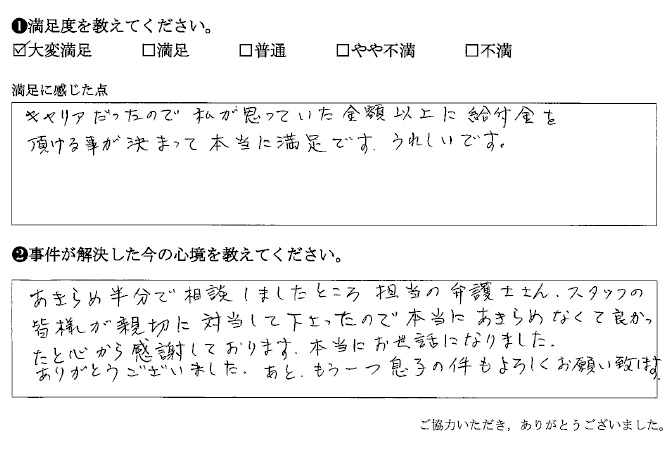 ❶満足度を教えてください。
☑大変満足 □満足 □普通 □やや不満 □不満
満足に感じた点
キャリアだったので 私が思っていた金額以上に給付金を
頂ける事が決まって本当に満足です。うれしいです。
❷事件が解決した今の心境を教えてください。
あきらめ半分で相談しましたところ 担当の弁護士さん、スタッフの
皆様が親切に対当して下さったので本当にあきらめなくて良かっ
たと心から感謝しております。本当にお世話になりました。
ありがとうございました。あと、もう一つ息子の件もよろしくお願い致します。
ご協力いただき，ありがとうございました。